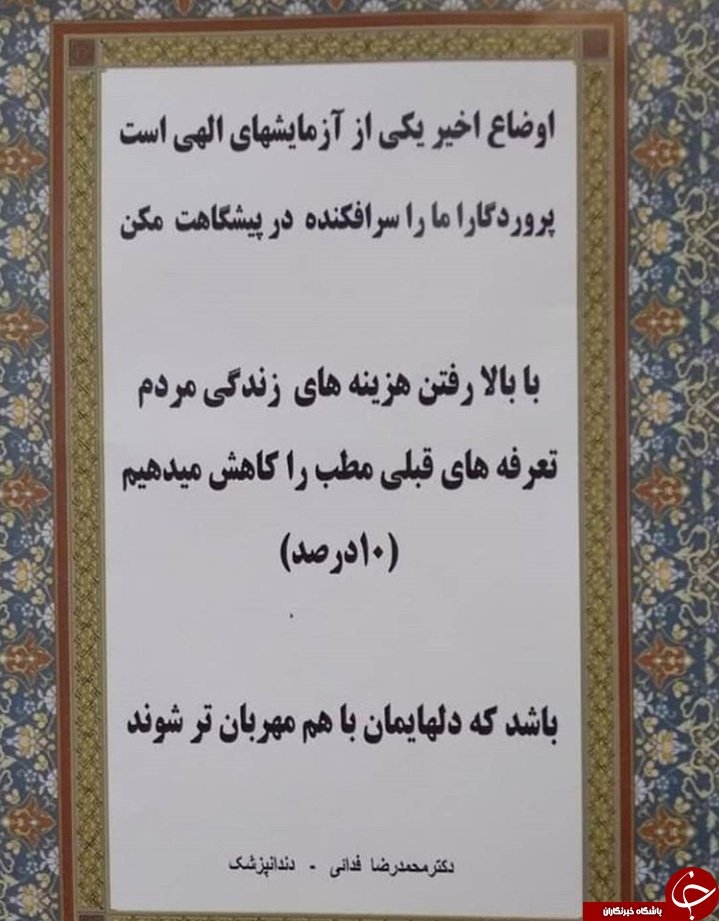 اوضاع اخیر یکی از آزمایشهای الهی است
پروردگارا ما را سرافکنده در پیشگاهت مکن
با بالا رفتن هزینه های زندگی مردم
تعرفه های قبلی مطب را کاهش میدهیم
(۱۰درصد)
باشد که دلهایمان با هم مهربان تر شوند
دکترمحمدرضا فدائی - دندانپزشک
باشگاه خبرنگاران